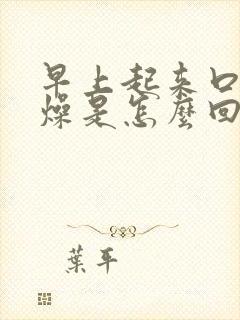 早上起来口
燥是怎麼回
葉平